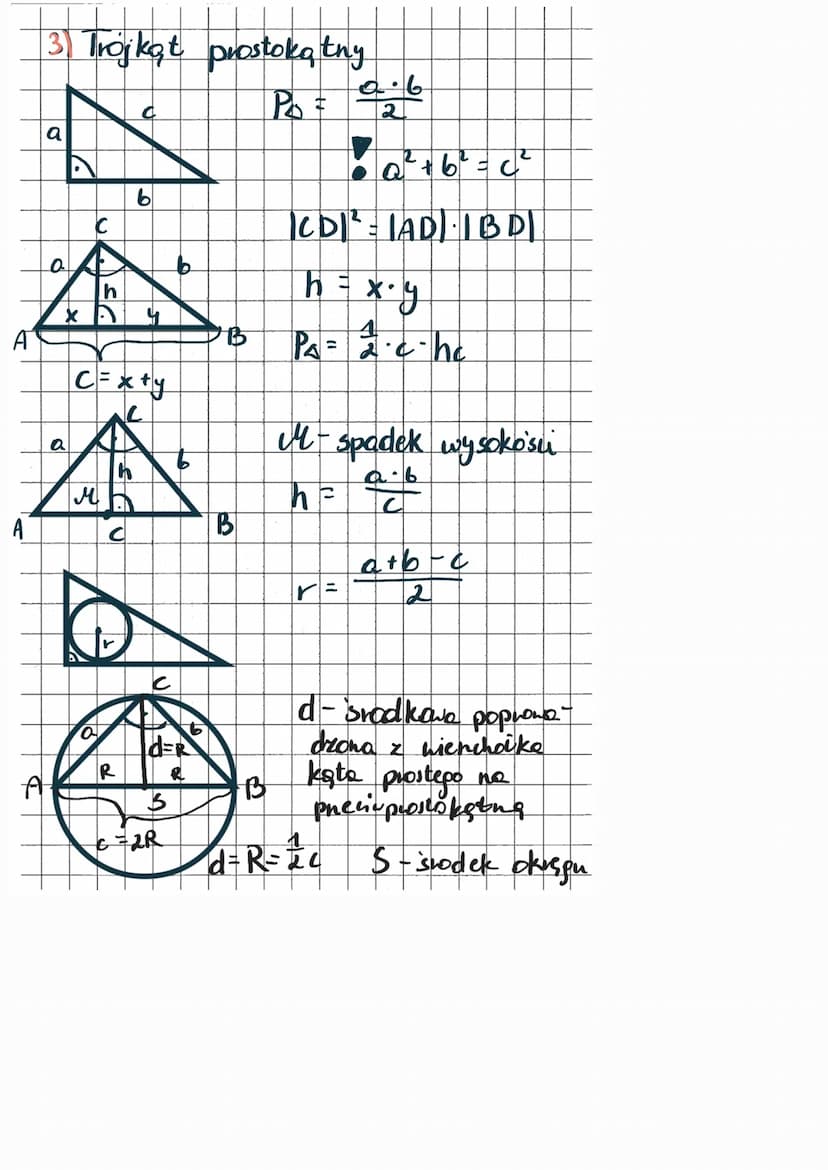 3) Trójkąt prostokątny
a
c
b
P△ = a·b/2
! a² + b² = c²
C
a
b
h
x
y
A
B
C = x+y
|CD|² = |AD|·|BD|
h = x·y
P△ = 1/2 · c · hc
C
a
b
h
M
A
C
B
M - spadek wysokości
h = a·b/c
r
r = a+b-c/2
C
a
b
d=R
R
R
A
B
S
c = 2R
d - środkowa poprowa-
dzona z wierzchołka
kąta prostego na
przeciwprostokątną
d=R=1/2c
S - środek okręgu